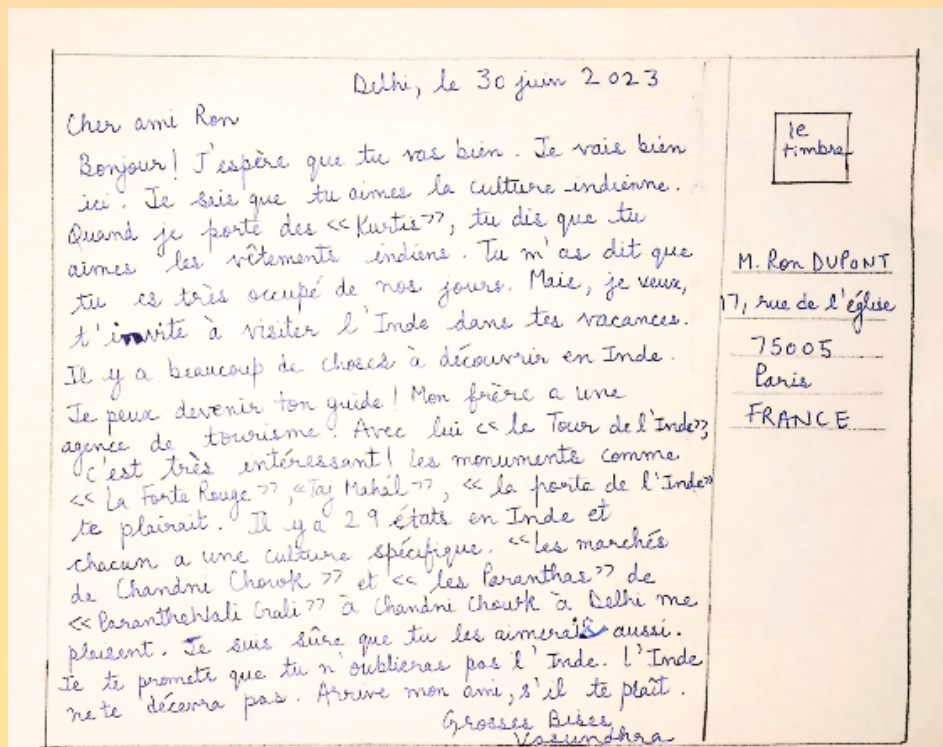 Delhi, le 30 juin 2023
Cher ami Ron
Bonjour! J'espère que tu vas bien. Je vais bien
ici. Je sais que tu aimes la culture indienne.
Quand je porte des <<Kurtis>>, tu dis que tu
aimes les vêtements indiens. Tu m'as dit que
tu es très occupé de nos jours. Mais, je veux,
t'invite à visiter l'Inde dans tes vacances.
Il y a beaucoup de choses à découvrir en Inde.
Je peux devenir ton guide! Mon frère a une
agence de tourisme. Avec lui << le Tour de l'Inde>>,
c'est très intéressant! Les monuments comme
<< La Forte Rouge >>, <<Taj Mahal>>, << la porte de l'Inde>>
te plairait. Il y a 29 états en Inde et
chacun a une culture spécifique. <<Les marchés
de Chandni Chowk >> et << les Paranthas>> de
<<Paranthewali Gali >> à Chandni Chowk à Delhi me
plaisent. Je suis sûre que tu les aimerais aussi.
Je te promets que tu n'oublieras pas l'Inde. L'Inde
ne te décevra pas. Arrive mon ami, s'il te plaît.
Grosses Bises
Vasundhra
le
timbre
M. Ron DUPONT
17, rue de l'église
75005
Paris
FRANCE